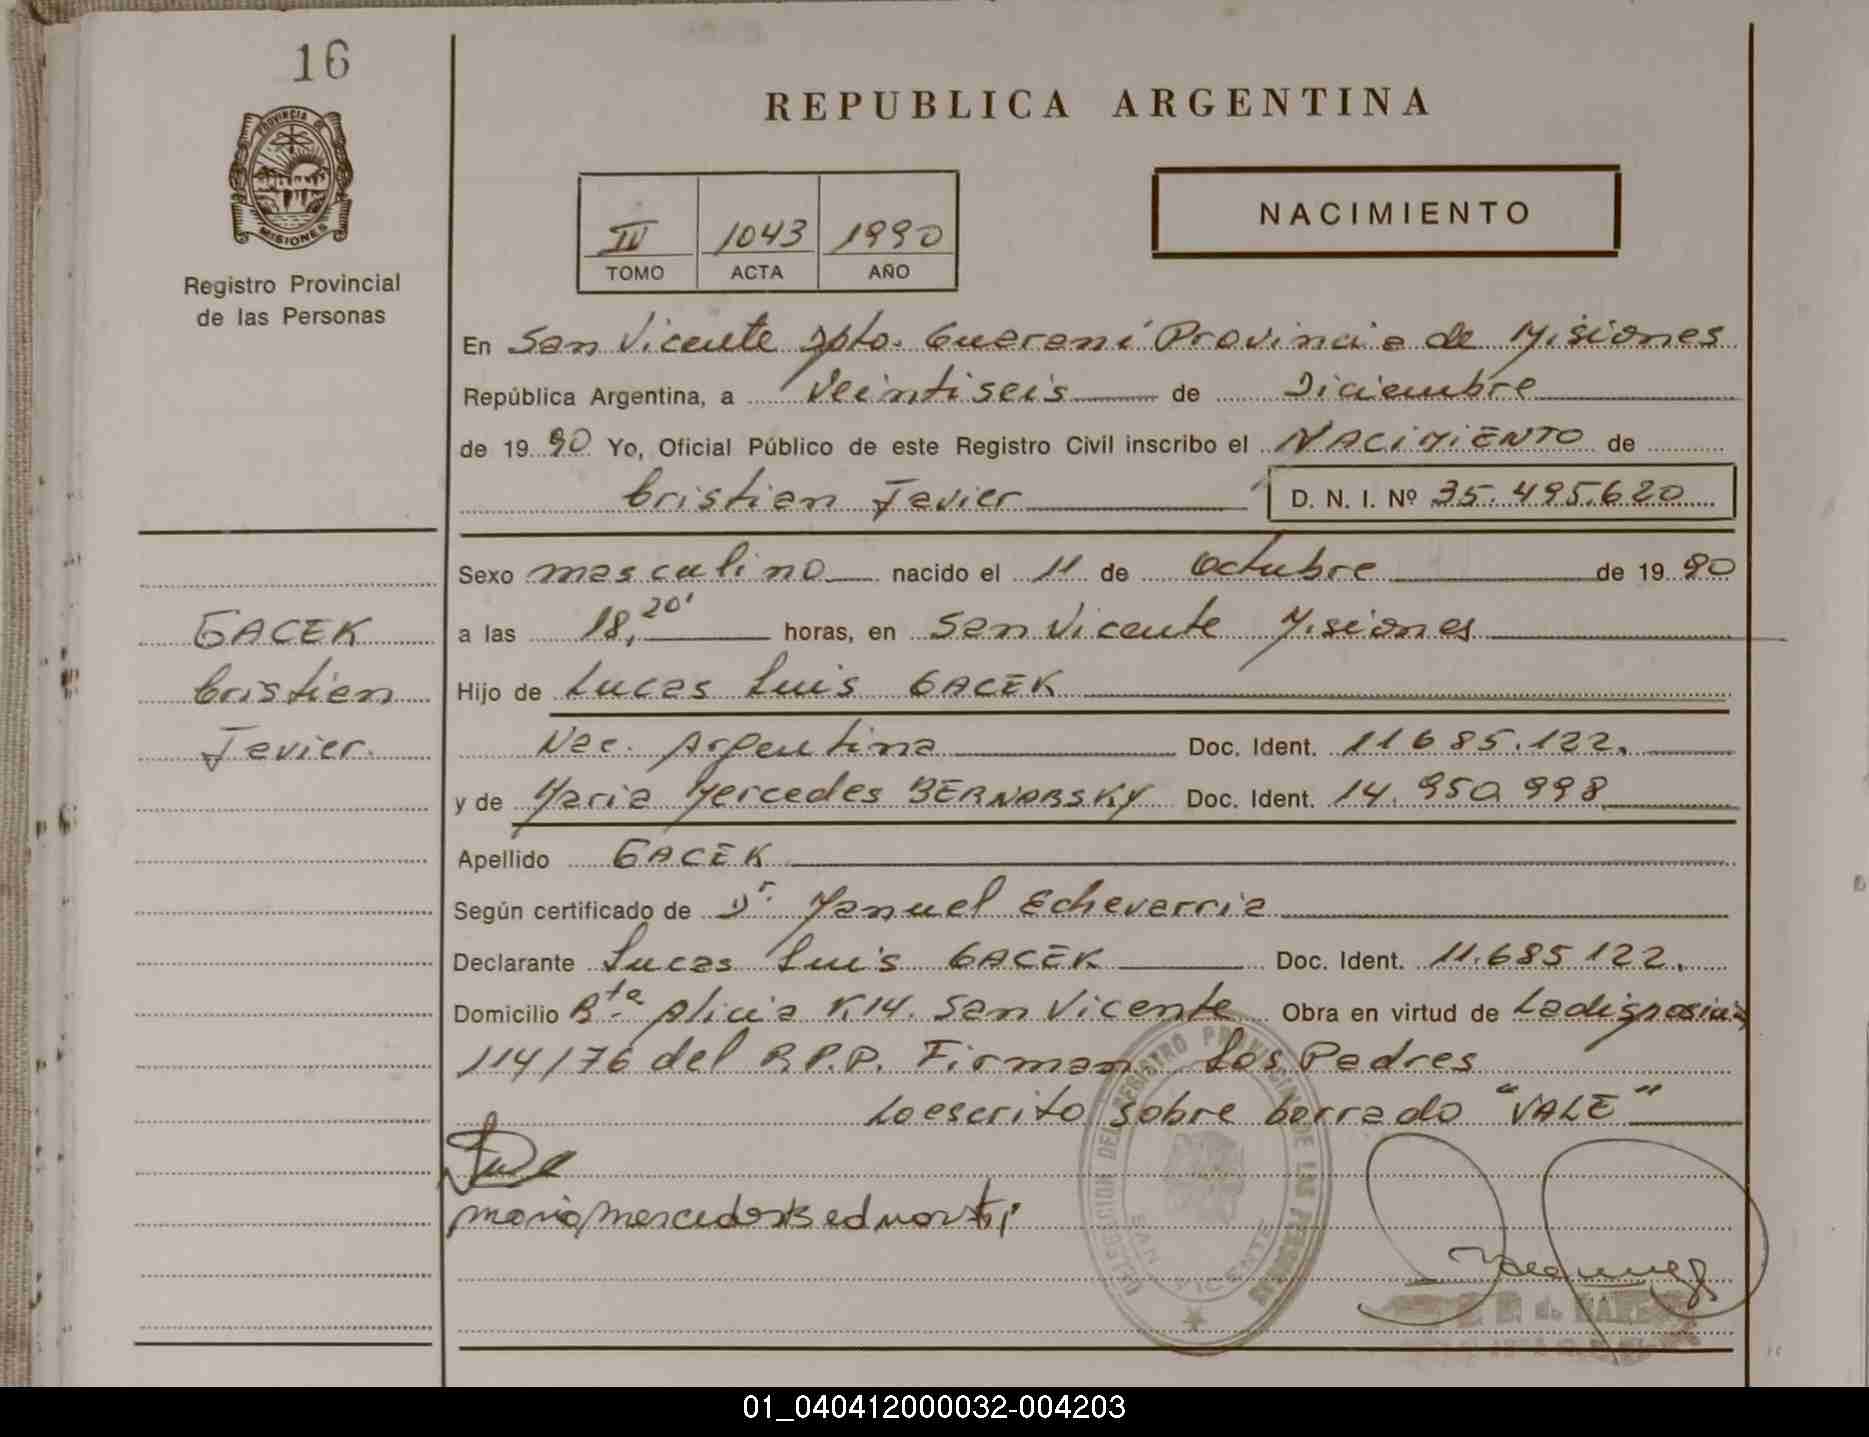 16
PROVINCIA DE
MISIONES
Registro Provincial
de las Personas
REPUBLICA ARGENTINA
NACIMIENTO
IV 1043 1990
TOMO ACTA AÑO
En San Vicente Dpto. Guaraní Provincia de Misiones
República Argentina, a Veintiseis de Diciembre
de 19 90 Yo, Oficial Público de este Registro Civil inscribo el NACIMIENTO de
Cristian Javier D. N. I. Nº 35.495.620
Sexo masculino nacido el 11 de Octubre de 19 90
a las 18,20' horas, en San Vicente Misiones
Hijo de Lucas Luis GACEK
Nac. Argentina Doc. Ident. 11685.122.
y de Maria Mercedes BERNARSKY Doc. Ident. 14.950 998
Apellido GACEK
Según certificado de Dr. Manuel Echeverria
Declarante Lucas Luis GACEK Doc. Ident. 11.685 122.
Domicilio Rta. Alicia K.14. San Vicente Obra en virtud de La disposición
114/76 del R.P.P. Firman Los Padres
Lo escrito sobre borrado "VALE"
GACEK
Cristian
Javier.
DELEGACION DEL REGISTRO PROVINCIAL DE LAS PERSONAS
SAN VICENTE
01_040412000032-004203